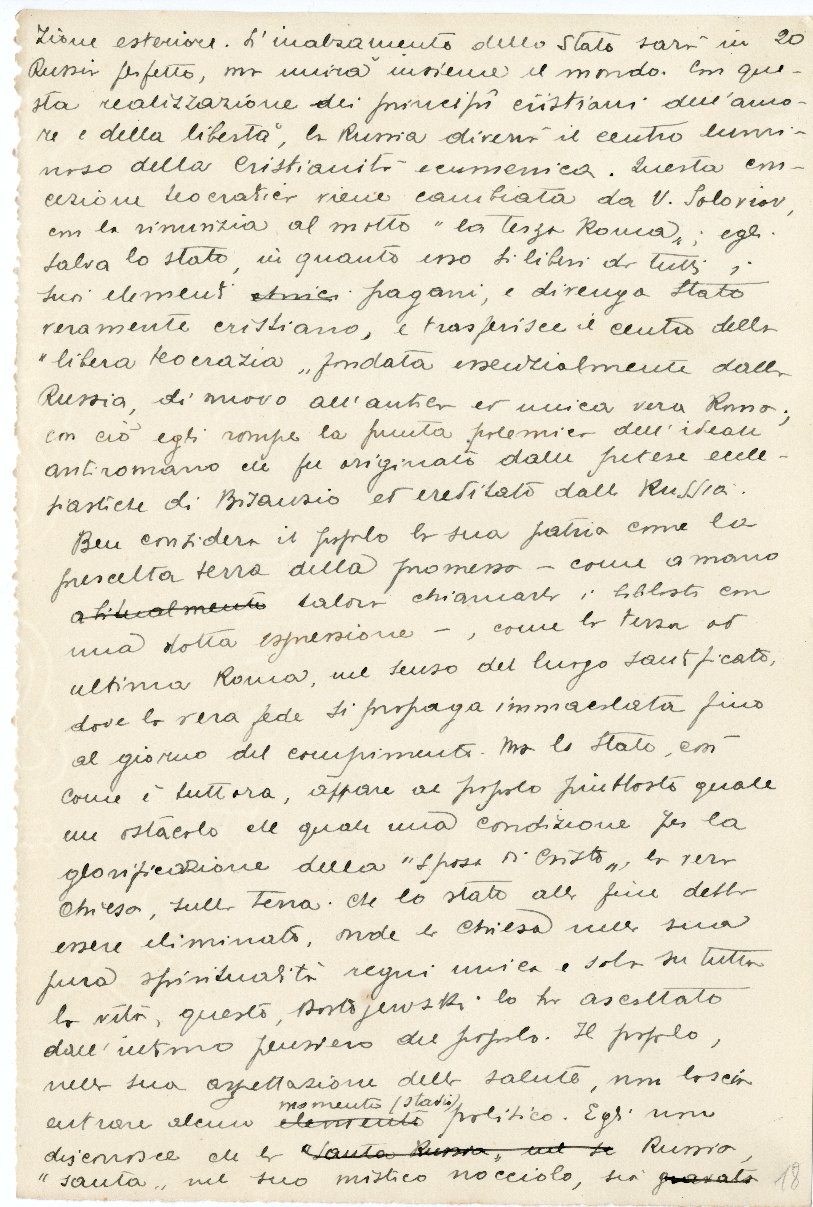 zione esteriore. L'inalzamento dello Stato sarà in 20
Russia perfetto, ma unirà insieme il mondo. Con que-
sta realizzazione dei principî cristiani dell'amo-
re e della libertà, la Russia diverrà il centro lumi-
noso della Cristianità ecumenica. Questa con-
cezione teocratica viene cambiata da V. Soloviov,
con la rinunzia al motto "la terza Roma"; egli
salva lo stato, in quanto esso si liberi da tutti i
suoi elementi etnici pagani, e divenga Stato
veramente cristiano, e trasferisce il centro della
"libera teocrazia" fondata essenzialmente dalla
Russia, di nuovo all'antica ed unica vera Roma;
con ciò egli rompe la punta polemica dell'ideale
antiromano che fu originato dalle pretese eccle-
siastiche di Bisanzio ed ereditato dalla Russia.
Ben considera il popolo la sua patria come la
prescelta terra della promessa – come amano
abitualmente talora chiamarla i con
una dotta espressione –, come la terza ed
ultima Roma, nel senso del luogo santificato,
dove la vera fede si propaga immacolata fino
al giorno del compimento. Ma lo Stato, così
come è tuttora, appare al popolo piuttosto quale
un ostacolo che quale una condizione per la
glorificazione della "Sposa di Cristo", la vera
Chiesa, sulla terra. Che lo stato alla fine debba
essere eliminato, onde la Chiesa nella sua
pura spiritualità regni unica e sola su tutta
la vita, questo, Dostojewski lo ha ascoltato
dall'intimo pensiero del popolo. Il popolo,
nella sua aspettazione della salute, non lascia
entrare alcun elemento momento (stadio) politico. Egli non
disconosce che la "Santa Russia" nel se Russia,
"santa" nel suo mistico nocciolo, sia gravata 18